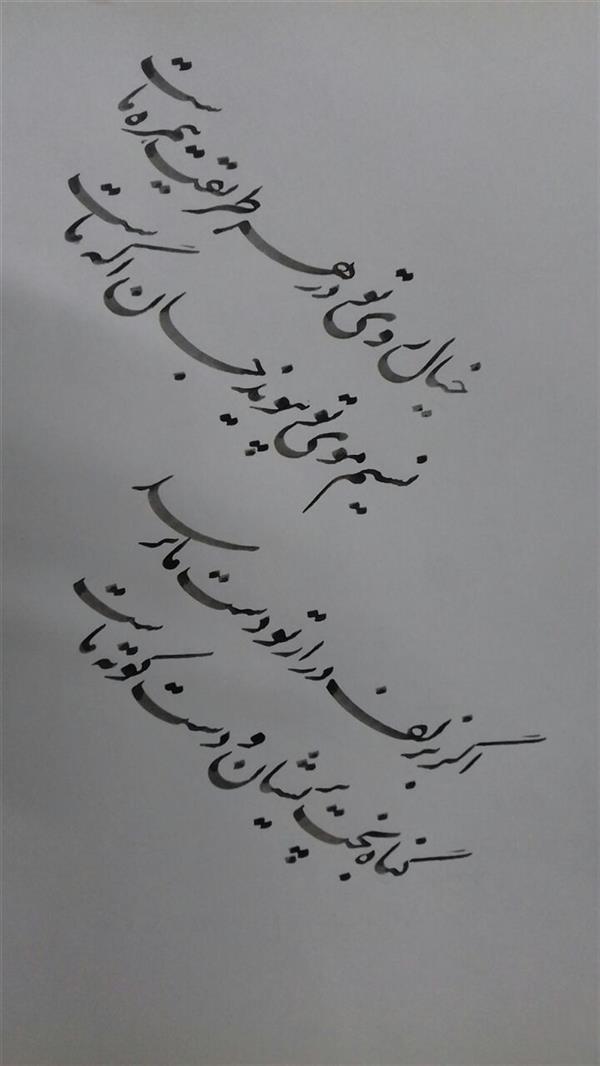 خیال روی تو در هر طریق همره ماست
نسیم موی تو پیوند جان آگه ماست
اگر بزلف دراز تو دست ما نرسد
گناه بخت پریشان و دست کوته ماست